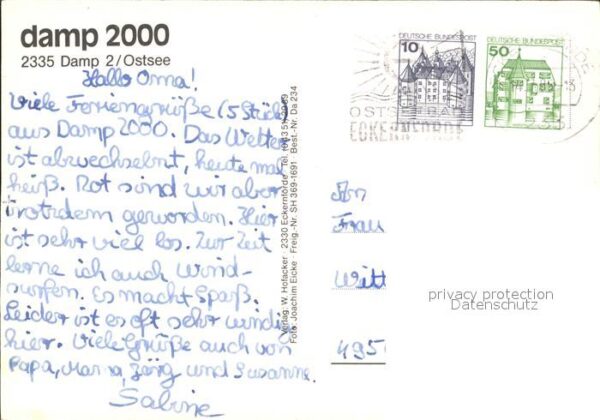 damp 2000
2335 Damp 2/Ostsee
Hallo Oma!
Viele Feriengrüße (5 Stück)
aus Damp 2000. Das Wetter
ist abwechselnt, heute mal
heiß. Rot sind wir aber
trotzdem geworden. Hier
ist sehr viel los. Zur Zeit
lerne ich auch Wind-
surfen. Es macht Spaß.
Leider ist es oft sehr windig
hier. Viele Grüße auch von
Papa, Mama, Jörg und Susanne.
Sabine
Verlag: W. Hofacker 2330 Eckernförde Tel.
Foto: Joachim Eicke Freig.-Nr. SH 369-1691 Best.-Nr. Da 234
DEUTSCHE BUNDESPOST
10
DEUTSCHE BUNDESPOST
50
OSTS
ECKERNFÖRDE
An
Frau
Witt
495
privacy protection
Datenschutz